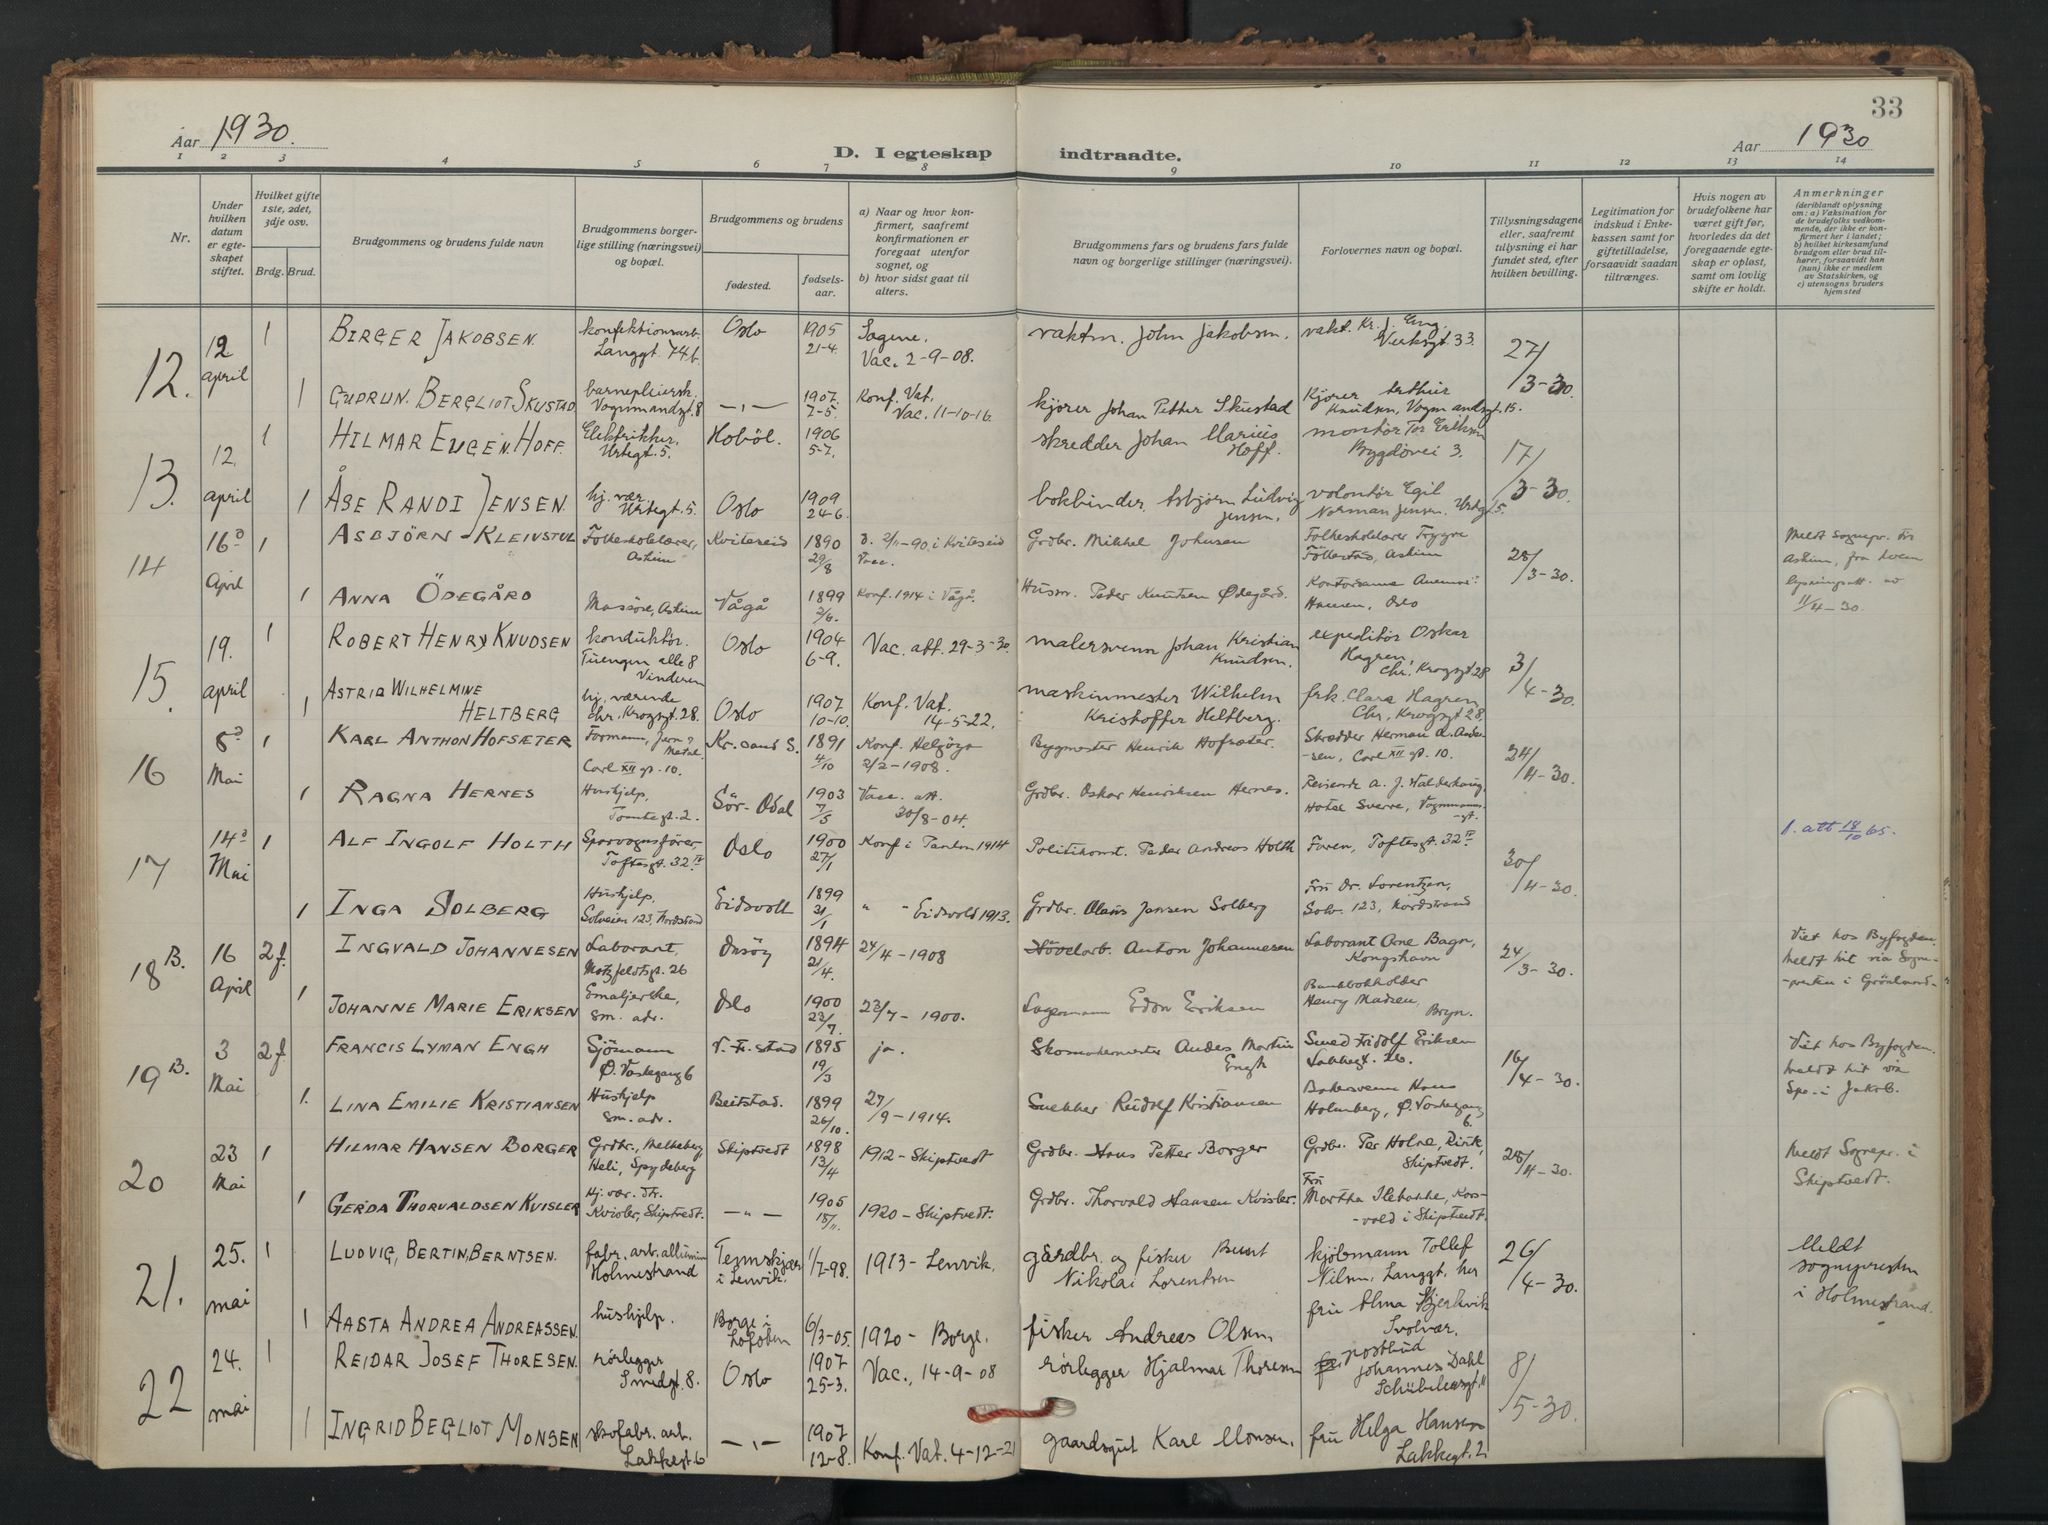 33
Aar 1930.
D. I egteskap indtraadte.
Aar 1930
1 2 3 4 5 6 7 8 9 10 11 12 13 14
Nr.
Under hvilken datum er egteskapet stiftet.
Hvilket gifte 1ste, 2det, 3dje osv.
Brdg. Brud.
Brudgommens og brudens fulde navn
Brudgommens borgerlige stilling (næringsvei) og bopæl.
Brudgommens og brudens
fødested.
fødselsaar.
a) Naar og hvor konfirmert, saafremt konfirmationen er foregaat utenfor sognet, og
b) hvor sidst gaat til alters.
Brudgommens fars og brudens fars fulde navn og borgerlige stillinger (næringsvei).
Forlovernes navn og bopæl.
Tillysningsdagene eller, saafremt tillysning ei har fundet sted, efter hvilken bevilling.
Legitimation for indskud i Enkekassen samt for giftetilladelse, forsaavidt saadan tiltrænges.
Hvis nogen av brudefolkene har været gift før, hvorledes da det foregaaende egteskap er opløst, samt om lovlig skifte er holdt.
Anmerkninger
(deriblandt oplysning om: a) Vaksination for de brudefolks vedkommende, der ikke er konfirmert her i landet; b) hvilket kirkesamfund brudgom eller brud tilhører, forsaavidt han (hun) ikke er medlem av Statskirken, og c) utensogns bruders hjemsted
12. 12 april 1 BIRGER JAKOBSEN. konfektionsarb. Langgt. 74b. Oslo 1905 21-4. Sagene. Vac. 2-9-08. vaktm. John Jakobsen. vakt. Kr. J. Eng. Verksgt. 33 27/3-30.
1 GUDRUN BERGLIOT SKUSTAD barnepleiersk. Vognmandsgt. 8 —„— 1907. 7-5. Konf. Vat. Vac. 11-10-16. kjører Johan Petter Skustad Kjører Arthur Knudsen, Vognmandsgt. 15.
13. 12. april 1 HILMAR EUGEN HOFF. Elektriker. Urtegt. 5. Hobøl. 1906 5-7. skredder Johan Marius Hoff. montør Tor Eriksen Bygdøvei 3. 17/3-30.
1 ÅSE RANDI JENSEN hj. vær. Urtegt. 5. Oslo 1909 24-6. bokbinder Asbjørn Ludvig Jensen. volontør Egil Norman Jensen. Urtegt. 5.
14 16d April 1 ASBJÖRN KLEIVSTUL Folkeskolelærer, Askim Kviteseid 1890 29/8 d. 2/11-90 i Kviteseid Vacc. Grdbr. Mikkel Johnsen Folkeskolelærer Trygve Askim 28/3-30. Meldt Sognepr. for Askim, fra hvem lysningsatt. av 11/4-30.
1 ANNA ÖDEGÅRD Massøse, Askim Vågå 1899 2/6. Konf. 1914 i Vågå. Husm. Peder Knutsen Ødegård. Kontordame Hansen, Oslo
15. 19. april 1 ROBERT HENRY KNUDSEN konduktør. Tuengen alle 8 Vinderen Oslo 1904 6-9. Vac. att. 29-3-30. malersvenn Johan Kristian Knudsen. expeditør Oskar Hagren, Chr. Krogsgt 28 3/4-30.
1 ASTRID WILHELMINE HELTBERG hj. værende Chr. Krogsgt. 28. Oslo 1907 10-10. Konf. Vat. 14-5-22. maskinmester Wilhelm Kristoffer Heltberg. frk. Clara Hagren Chr. Krogsgt 28.
16 8d Mai 1 KARL ANTHON HOFSÆTER Formann, Jern & Metal. Carl XII gt. 10. Kr. sand S. 1891 4/10 Konf. Helgöya 2/2-1908. Bygmester Henrik Hofsæter. Skrædder Herman A. Andersen, Carl XII gt. 10. 24/4-30.
1 RAGNA HERNES Hushjelp, Tomtegt. 2. Sör-Odal 1903 7/5 Vacc. att. 30/8-04. Grdbr. Oskar Henriksen Hernes. Reisende A. J. Walderhaug, Hotel Sverre, Vognmannsgt.
17 14d Mai 1 ALF INGOLF HOLTH Sporvognsfører, Toftesgt. 32 IV Oslo 1900 27/1 Konf i Tanken 1914 Politikonst. Peder Andreas Holth Faren, Toftesgt. 32 IV 30/4-30. 1. att 18/10 65.
1 INGA SOLBERG Hushjelp, Solveien 123, Nordstrand Eidsvoll 1899 31/1 " " Eidsvold 1913. Grdbr. Olaus Jensen Solberg Fru Dr. Lorentzen, Solv. 123, Nordstrand
18 B. 16 April 2 f. INGVALD JOHANNESEN Laborant, Motzfeldtsgt. 26 Onsöy 1894 21/4. 24/4-1908 Hövelarb. Anton Johannesen Laborant Arne Bagn, Kongshavn 24/3-30. Viet hos Byfogden. Meldt hit via Sognepresten i Grönland.
1 JOHANNE MARIE ERIKSEN Emaljerske, sm. adr. Oslo 1900 23/7. 23/7-1900. Lagermann Edon Eriksen Bankbokholder Henry Madsen, Bryn.
19 B. 3 Mai 2 f. FRANCIS LYMAN ENGH Sjömann Ø. Vaskegang 6 V. Fr.stad 1895 19/3 ja. Skomakermester Anders Martin Engh Smed Fridolf Eriksen Lakkegt. 26. 16/4-30. Viet hos Byfogden. Meldt hit via Spr. i Jakob.
1. LINA EMILIE KRISTIANSEN Hushjelp sm. adr. Beitstad. 1899 26/10. 27/9-1914. Snekker Rudolf Kristiansen Bakersvenn Hans Holmberg, Ø. Vaskegang 6.
20 23 Mai 1 HILMAR HANSEN BORGER Grdbr., Melleberg Heli, Spydeberg Skiptvedt 1898 13/4 1912-Skiptvedt Grdbr. Hans Petter Borger Grdbr. Per Holne, Skiptvedt. 28/4-30. Meldt Sognepr. i Skiptvedt.
1 GERDA THORVALDSEN KVISLER Hj. vær. dtr. Kvisler, Skiptvedt. —„— 1905 18/11. 1920-Skiptvedt. Grdbr. Thorvald Hansen Kvisler. Fru Martha Ilebakke, Korsvold i Skiptvedt.
21. 25. mai 1 LUDVIG, BERTIN, BERNTSEN. fabr. arb. alluminium Holmestrand Temskjær i Lenvik. 1/7-98. 1913-Lenvik. gårdbr. og fisker Bernt Nikolai Lorentsen kjøbmann Tollef Nilsen, Langgt. her 26/4-30. Meldt sognepresten i Holmestrand.
1 AASTA ANDREA ANDREASSEN. hushjelp. Borge i Lofoten 6/3-05. 1920-Borge. fisker Andreas Olsen fru Alma Bjerkvik Svolvær.
22 24. mai 1 REIDAR JOSEF THORESEN. rørlegger Smedgt. 8. Oslo 1907 25-3. Vac., 14-9-08 rørlegger Hjalmar Thoresen postbud Johannes Dahl Schübelersgt. 11 8/5-30.
1 INGRID BEGLIOT MONSEN skofabr. arb. Lakkegt. 6 —„— 1907 12-8. Konf. Vat. 4-12-21 gaardsgut Karl Monsen. fru Helga Hansen Lakkegt. 2